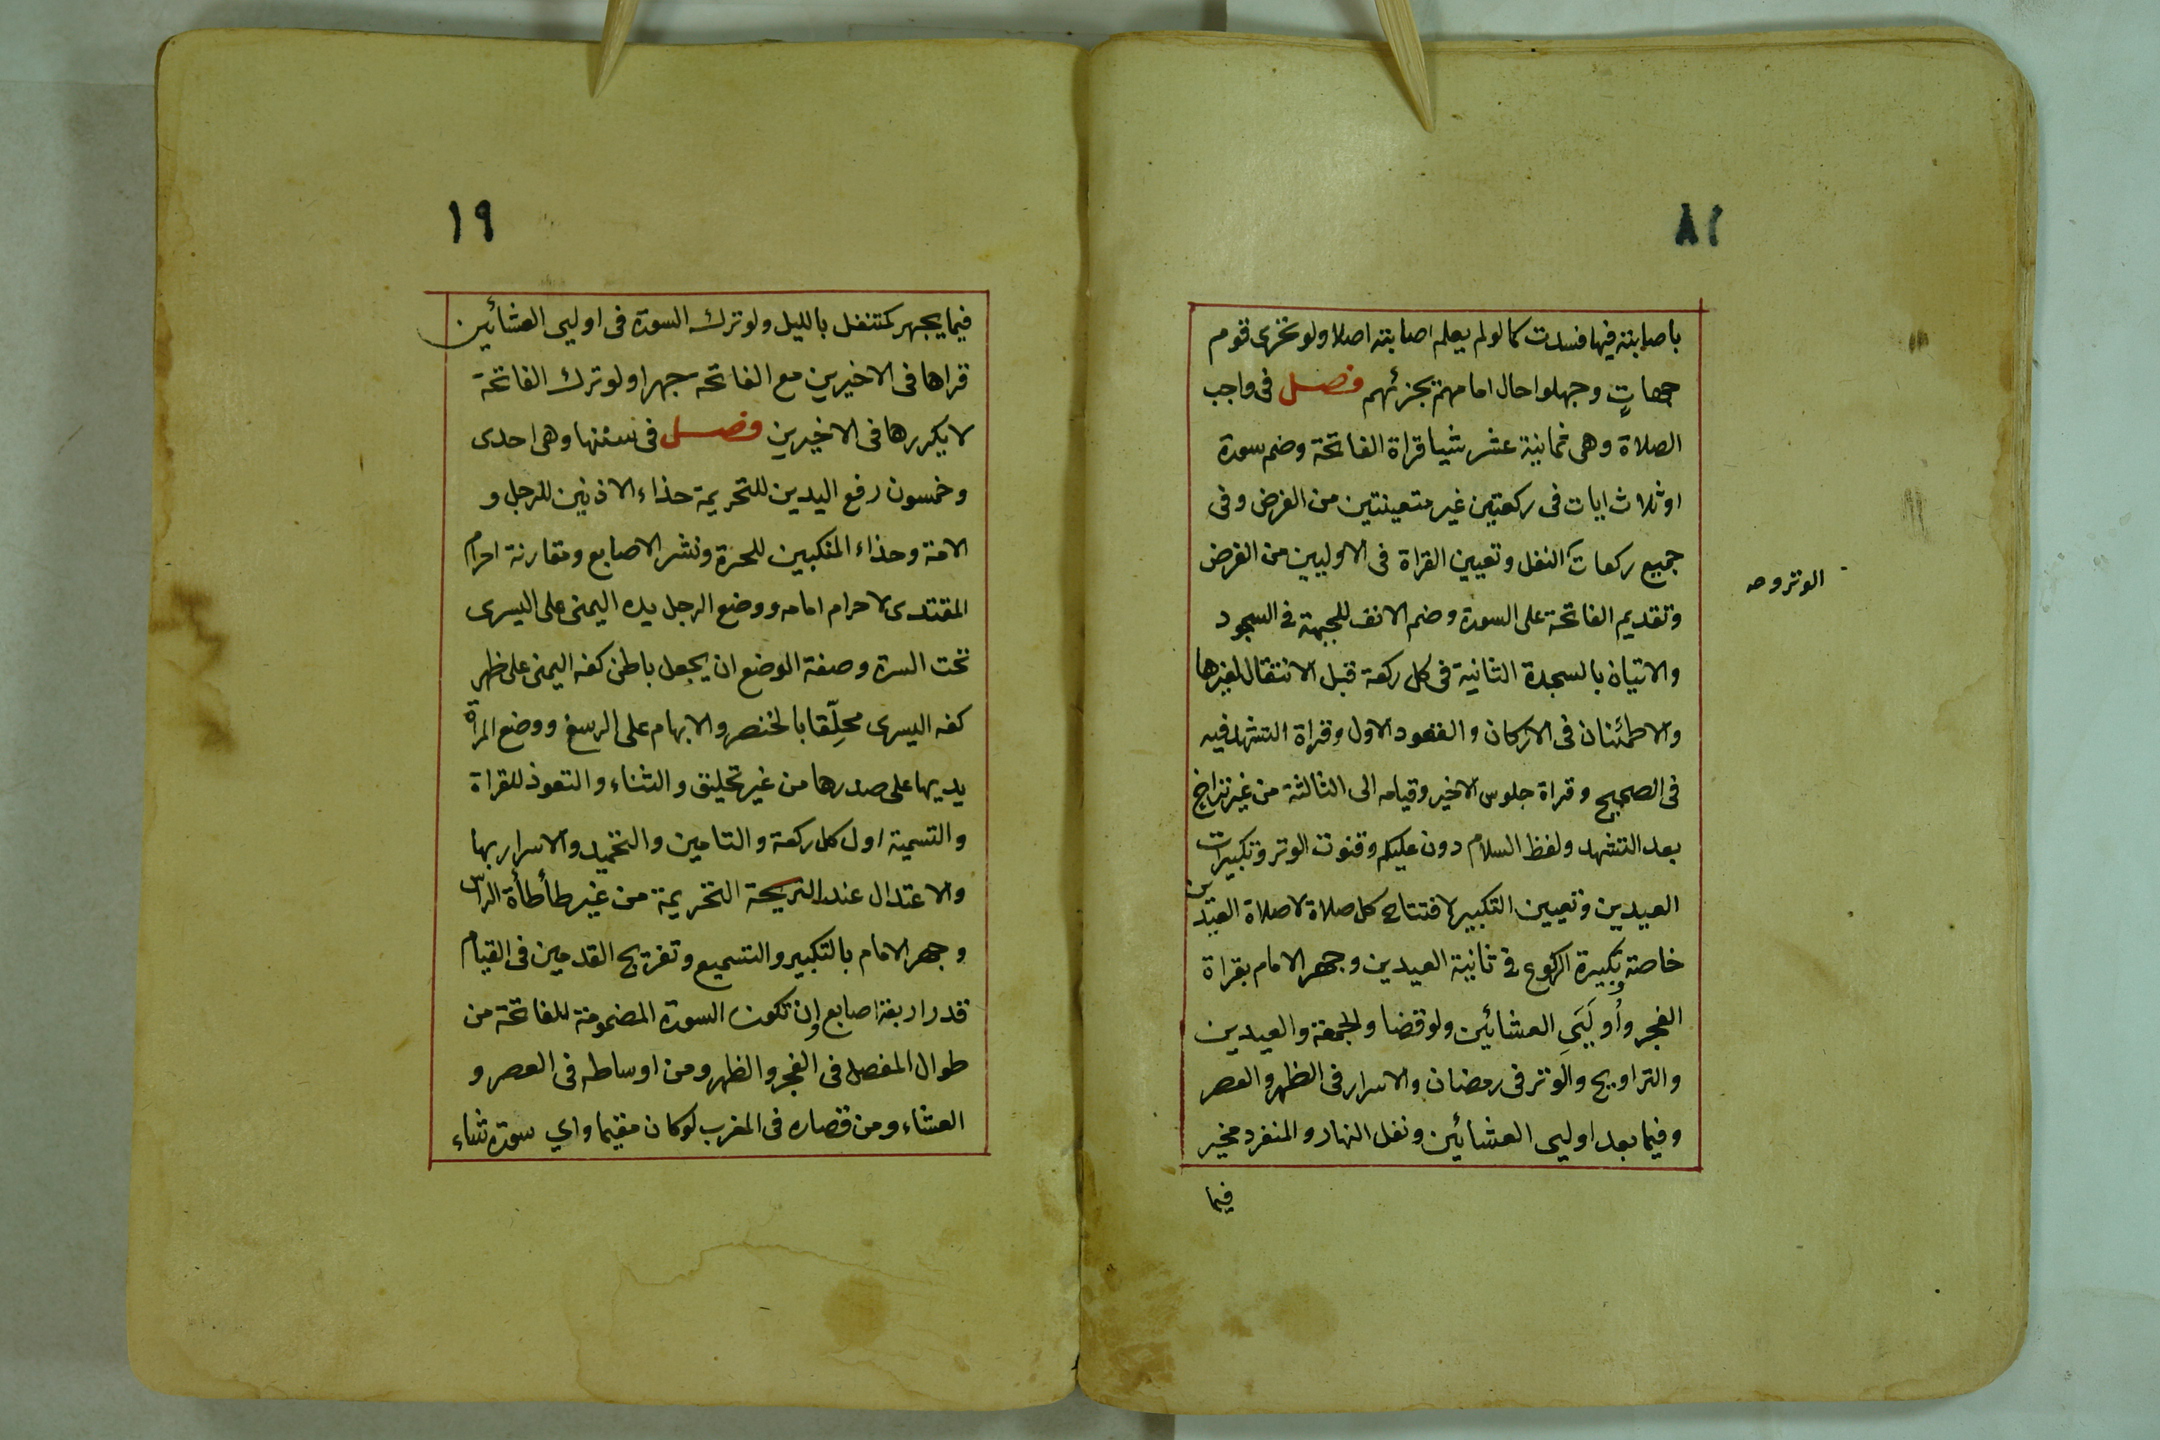 ١٨
باصابته فيها فسدت كما لو لم يعلم اصابته اصلا ولو تحرى قوم
جهاتٍ وجهلوا حال امامهم تجزئهم فصل فى واجب
الصلاة وهى ثمانية عشر شيا قراة الفاتحة وضم سورة
او ثلاث ايات فى ركعتين غير متعينتين من الفرض وفى
جميع ركعات النفل وتعيين القراة فى الاوليين من الفرض
الوتر و صه
وتقديم الفاتحة على السورة وضم الانف للجبهة فى السجود
والاتيان بالسجدة الثانية فى كل ركعة قبل الانتقال لغيرها
والاطمئنان فى الاركان والقعود الاول وقراة التشهد فيه
فى الصحيح وقراة جلوس الاخير وقيامه الى الثالثة من غير تراخ
بعد التشهد ولفظ السلام دون عليكم وقنوت الوتر وتكبيرات
العيدين وتعيين التكبير لافتتاح كل صلاة لا صلاة العيدين
خاصة وتكبيرة الركوع فى ثانية العيدين وجهر الامام بقراة
الفجر وأُولَيَيِ العشائين ولو قضا والجمعة والعيدين
والتراويح والوتر فى رمضان والاسرار فى الظهر والعصر
وفيما بعد اوليى العشائين ونفل النهار والمنفرد مخير
فيما
١٩
فيما يجهر كمتنفل بالليل ولو ترك السورة فى اوليى العشائين
قراها فى الاخيرين مع الفاتحه جهرا ولو ترك الفاتحة
لا يكررها فى الاخيرين فصل فى سننها وهى احدى
وخمسون رفع اليدين للتحريمة حذاء الاذنين للرجل و
الامة وحذاء المنكبين للحرة ونشر الاصابع ومقارنة احرام
المقتدى لاحرام امامه ووضع الرجل يده اليمنى على اليسرى
تحت السرة وصفة الوضع ان يجعل باطن كفه اليمنى على ظهر
كفه اليسرى محلِّقا بالخنصر والابهام على الرسغ ووضع المراة
يديها على صدرها من غير تحليق والثناء والتعوذ للقراة
والتسمية اول كل ركعة والتامين والتحميد والاسرار بها
والاعتدال عند التريحة التحريمة من غير طأطأة الراس
وجهر الامام بالتكبير والتسميع وتفريج القدمين فى القيام
قدر اربعة اصابع إن تكون السورة المضمومة للفاتحة من
طوال المفصل فى الفجر والظهر ومن اوساطه فى العصر و
العشاء ومن قصاره فى المغرب لو كان مقيما واي سورة شاء